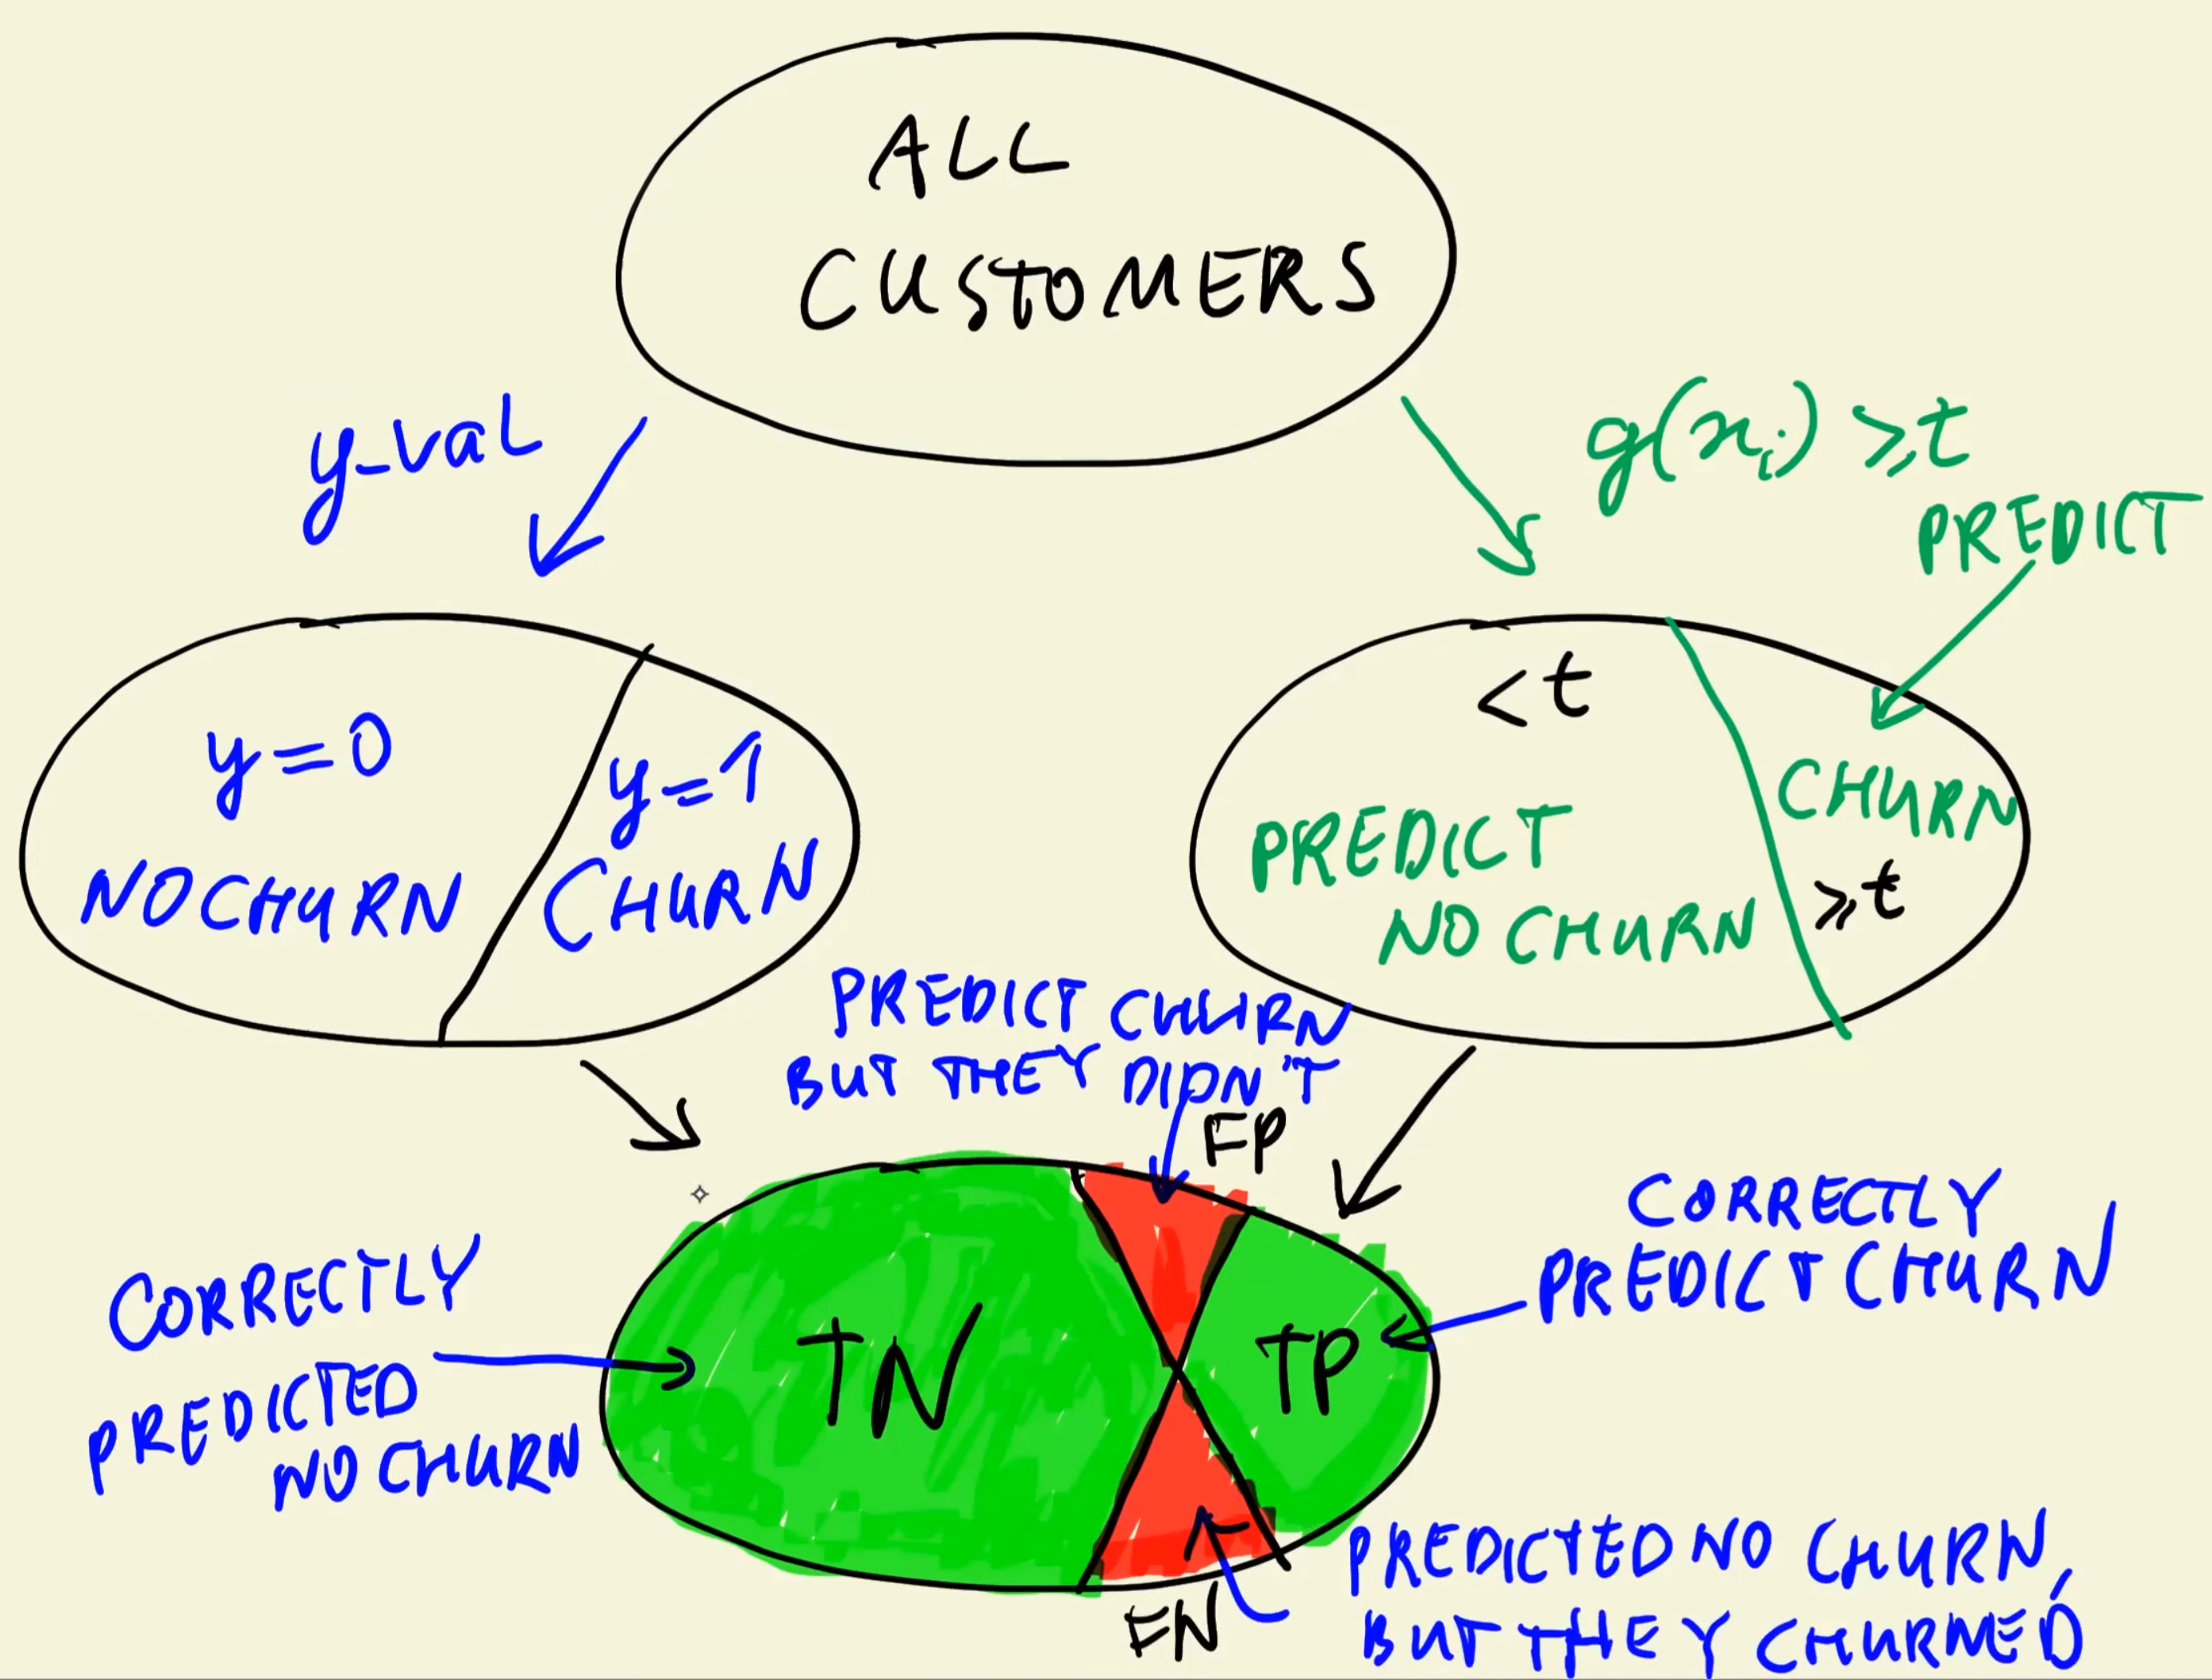 ALL
CUSTOMERS
y-val
g(xi) ⩾t
PREDICT
y=0
NO CHURN
y=1
CHURN
<t
PREDICT
NO CHURN
CHURN
⩾t
PREDICT CHURN
BUT THEY DIDN'T
FP
CORRECTLY
PREDICTED
NO CHURN
TN
TP
CORRECTLY
PREDICT CHURN
FN
PREDICTED NO CHURN,
BUT THEY CHURNED